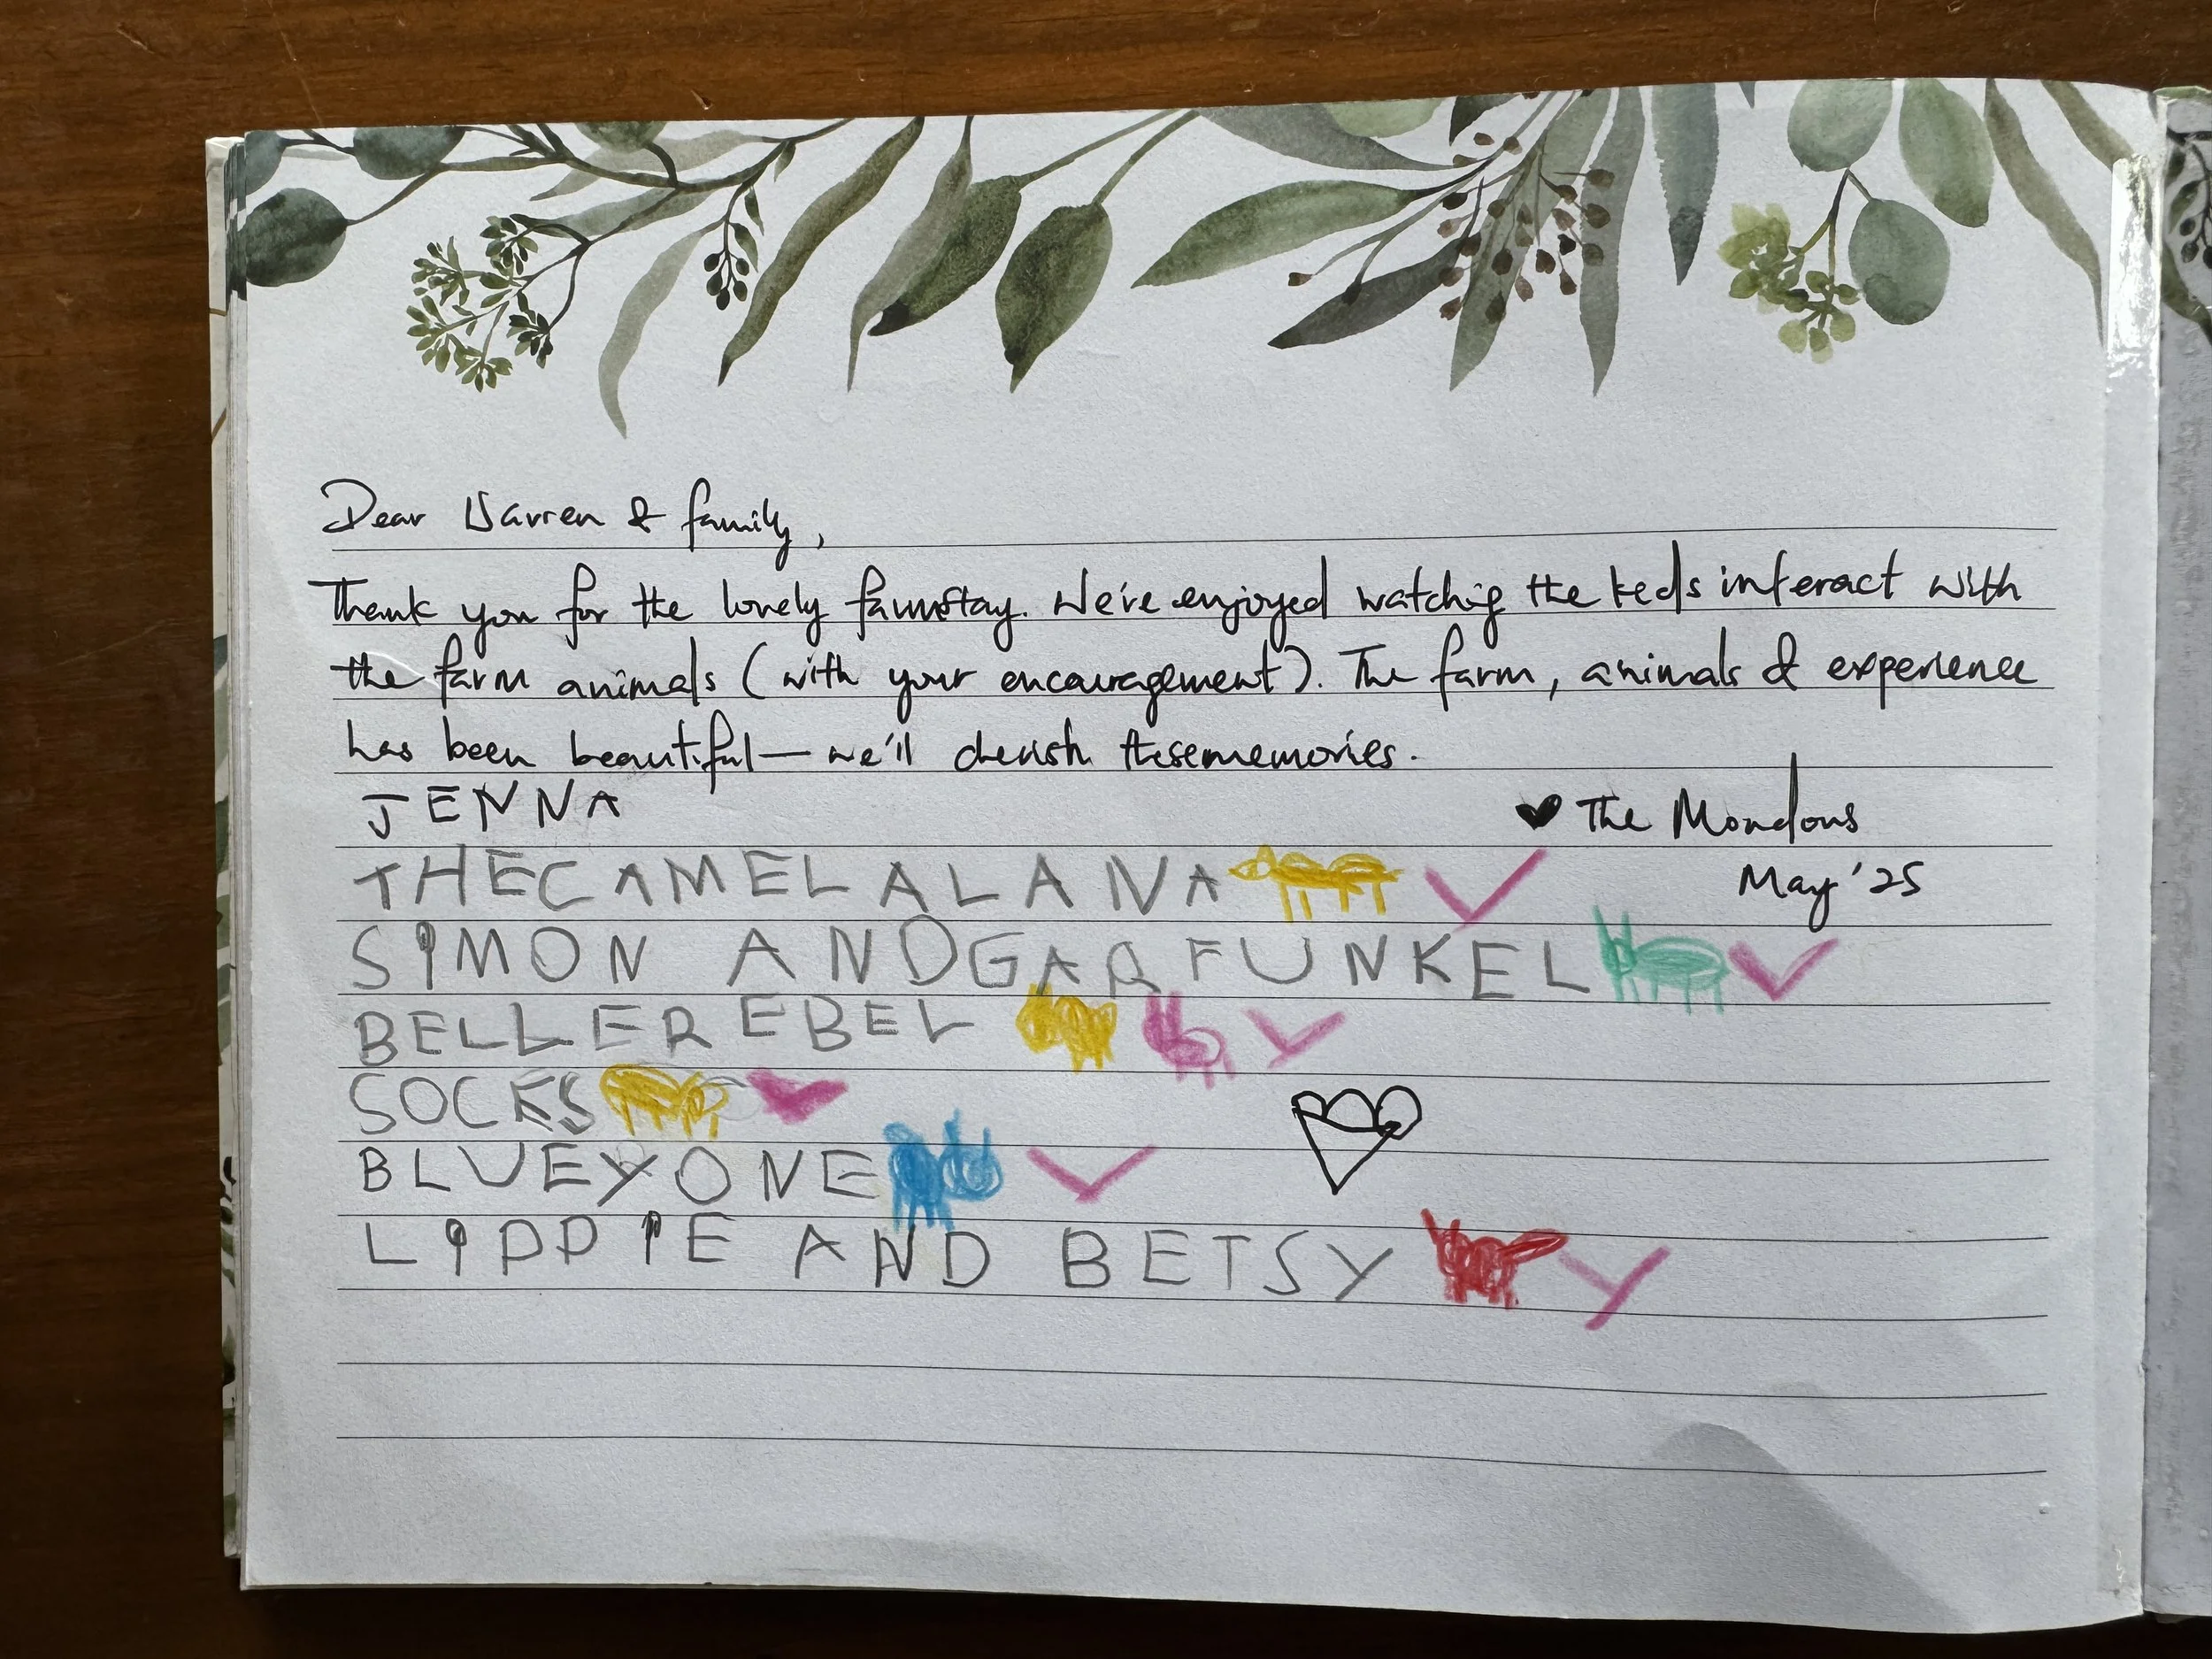 Dear Warren & family,
Thank you for the lovely farmstay. We've enjoyed watching the kids interact with
the farm animals (with your encouragement). The farm, animals & experience
has been beautiful — we'll cherish these memories.
JENNA
♥ The Mondous
THECAMELALANA
May '25
SIMON ANDGARFUNKEL
BELLEREBEL
SOCKS
BLUEYONE
LIPPIE AND BETSY